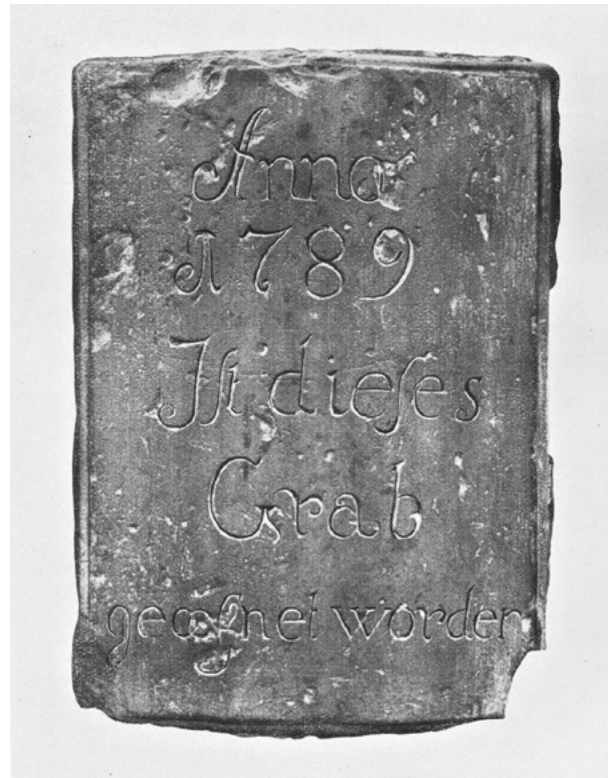 Anna
1789
Iſt dieſes
Grab
geoefnet worden